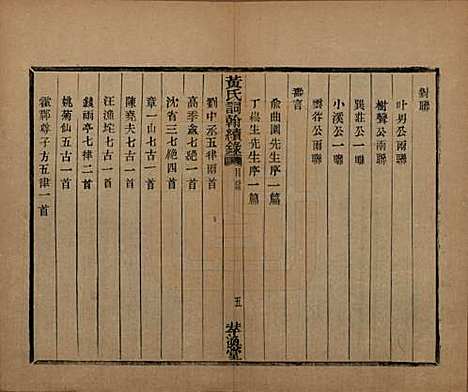 對聯
叶男公兩聯
樹聲公兩聯
巽莊公一聯
小溪公一聯
雲谷公兩聯
壽言
俞曲園先生序一篇
丁儀生先生序一篇
黃氏詞翰續錄
目錄
五
萃渙堂
劉中丞五律兩首
高季歲七絕一首
沈省三七絕四首
章一山七古一首
陳堯夫七古一首
汪漁垞七古一首
錢雨亭七律二首
姚菊仙五古一首
霍郡尊子方五律一首